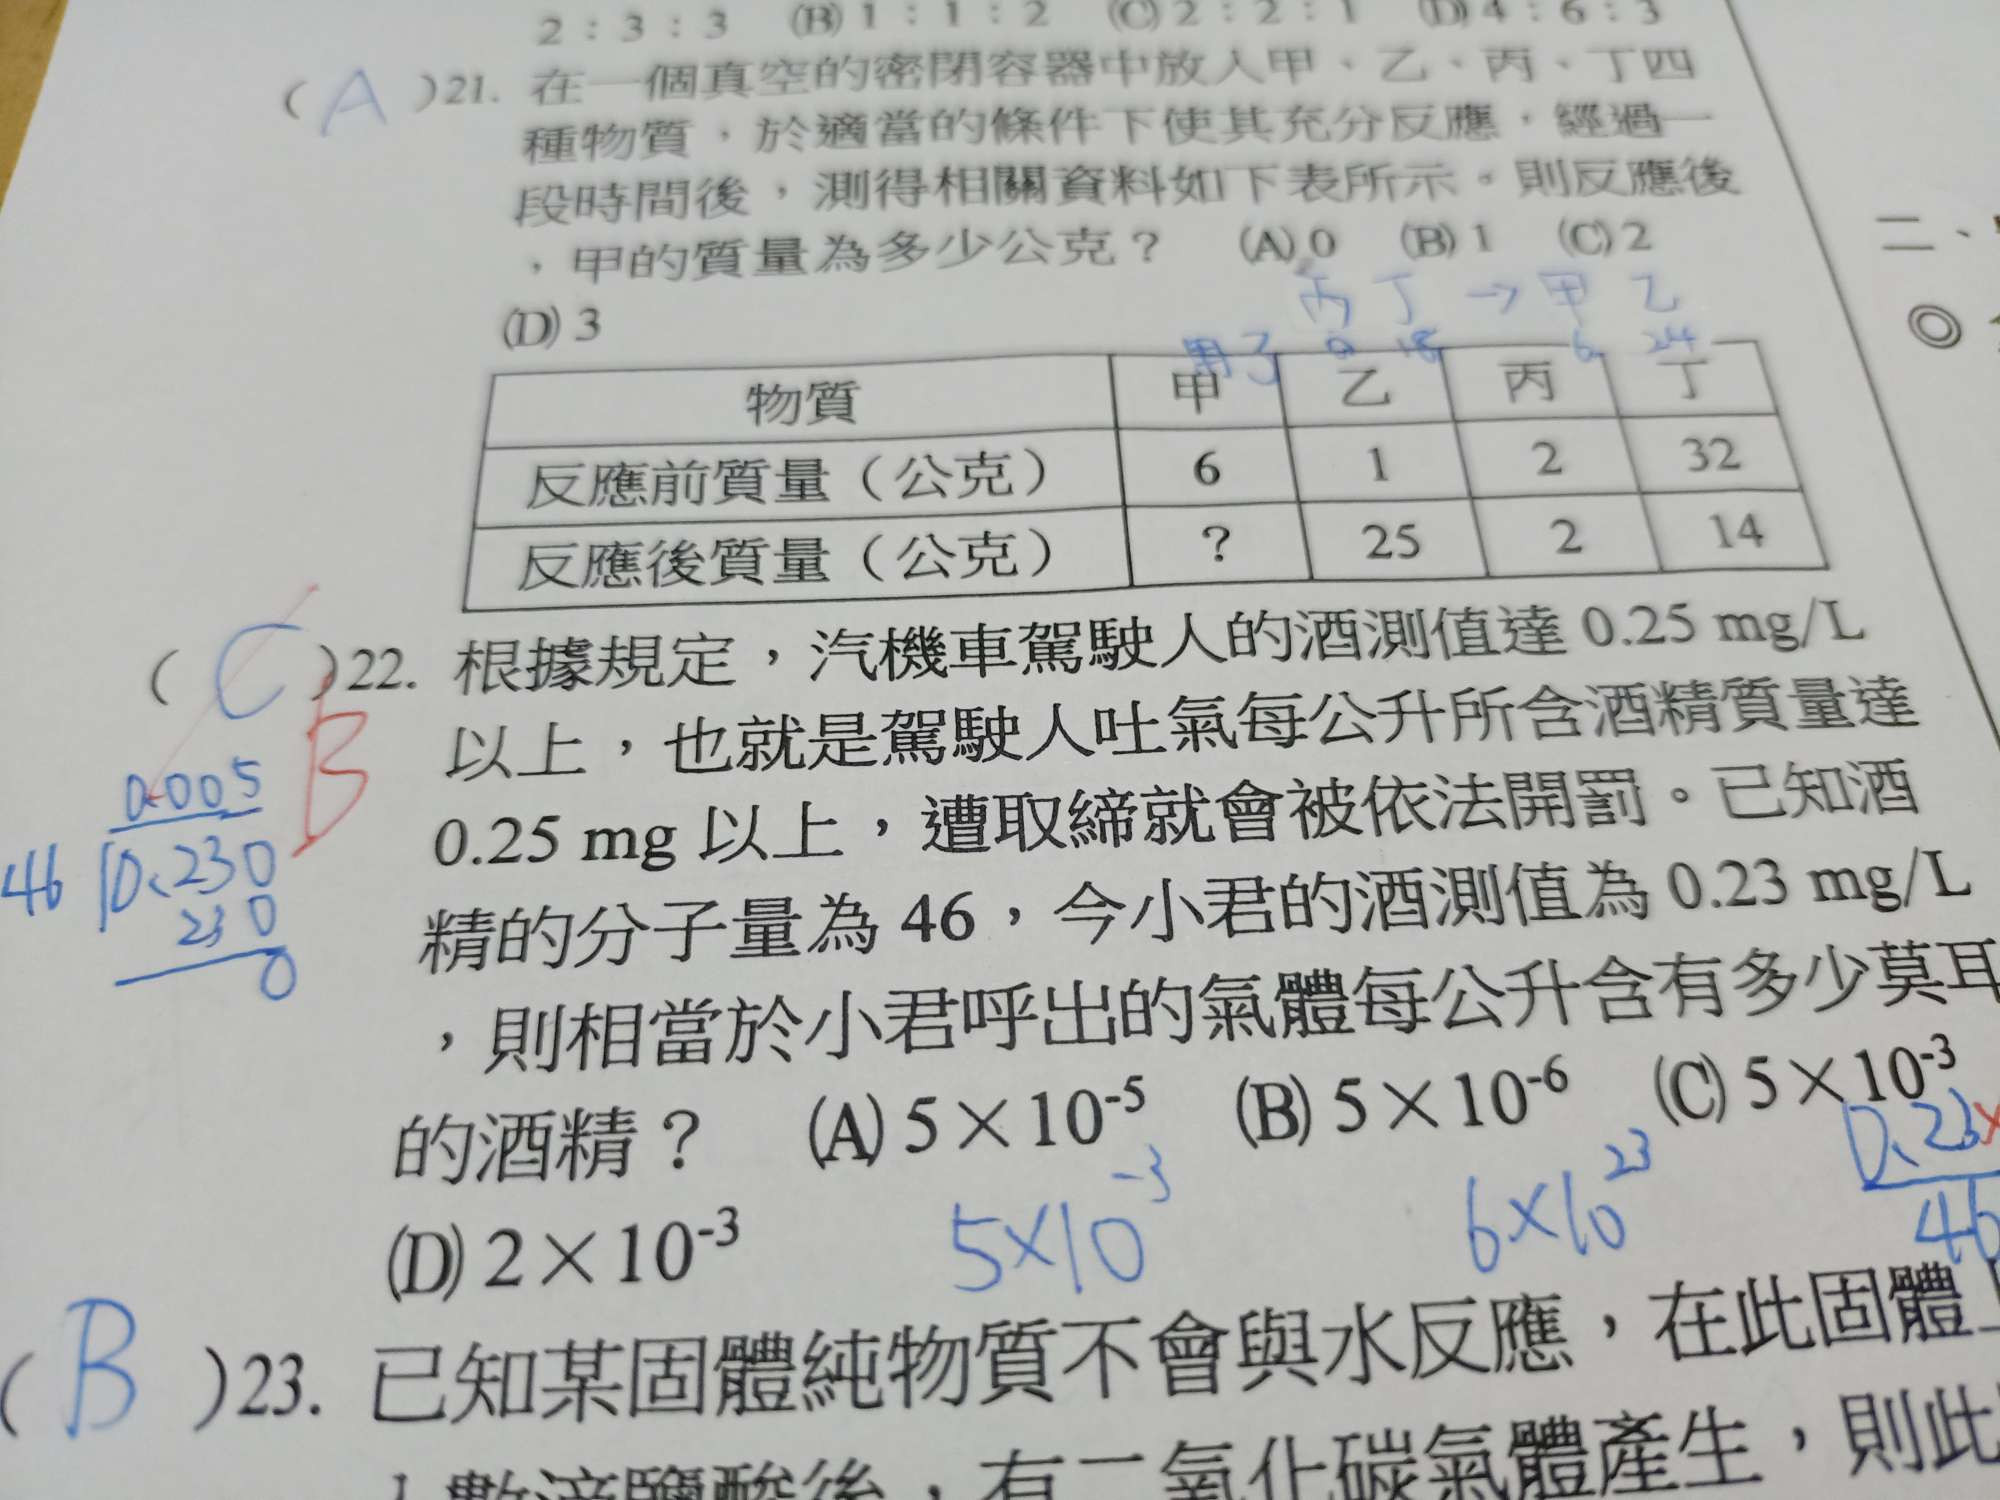 2：3：3　(B) 1：1：2　(C) 2：2：1　(D) 4：6：3
( A )21. 在一個真空的密閉容器中放入甲、乙、丙、丁四
種物質，於適當的條件下使其充分反應，經過一
段時間後，測得相關資料如下表所示。則反應後
，甲的質量為多少公克？　(A) 0　(B) 1　(C) 2
丙 丁 → 甲 乙
(D) 3
18 6 24
物質 甲 乙 丙 丁
反應前質量（公克） 6 1 2 32
反應後質量（公克） ? 25 2 14
( C )22. 根據規定，汽機車駕駛人的酒測值達 0.25 mg/L
B
以上，也就是駕駛人吐氣每公升所含酒精質量達
0.005
0.25 mg 以上，遭取締就會被依法開罰。已知酒
46 0.230
精的分子量為 46，今小君的酒測值為 0.23 mg/L
230
0
，則相當於小君呼出的氣體每公升含有多少莫耳
的酒精？　(A) 5×10⁻⁵　(B) 5×10⁻⁶　(C) 5×10⁻³
0.23×
46
(D) 2×10⁻³
5×10⁻³　6×10²³
( B )23. 已知某固體純物質不會與水反應，在此固體上
數滴鹽酸後，有二氧化碳氣體產生，則此
二、
◎